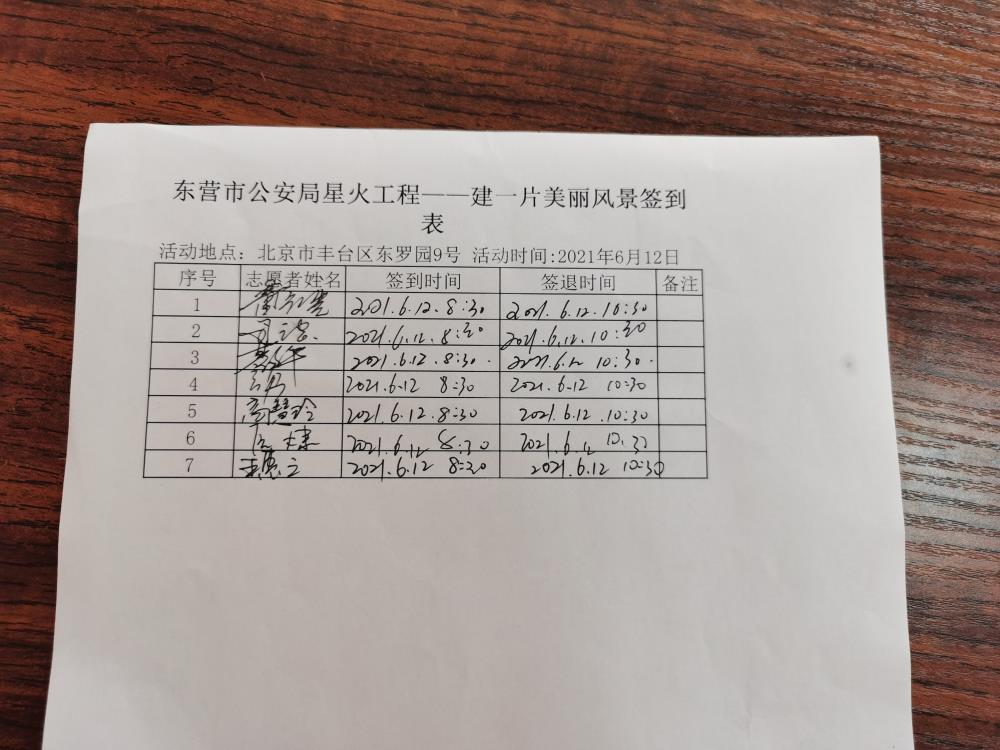 东营市公安局星火工程——建一片美丽风景签到
表
活动地点：北京市丰台区东罗园9号 活动时间:2021年6月12日
序号 志愿者姓名 签到时间 签退时间 备注
1 2021.6.12.8:30 2021.6.12.10:30
2 2021.6.12.8:30 2021.6.12.10:30
3 2021.6.12.8:30. 2021.6.12 10:30.
4 2021.6.12 8:30 2021.6.12 10:30
5 高慧玲 2021.6.12.8:30 2021.6.12.10:30
6 2021.6.12 8.30 2021.6.12
7 2021.6.12 8:30 2021.6.12 10:30